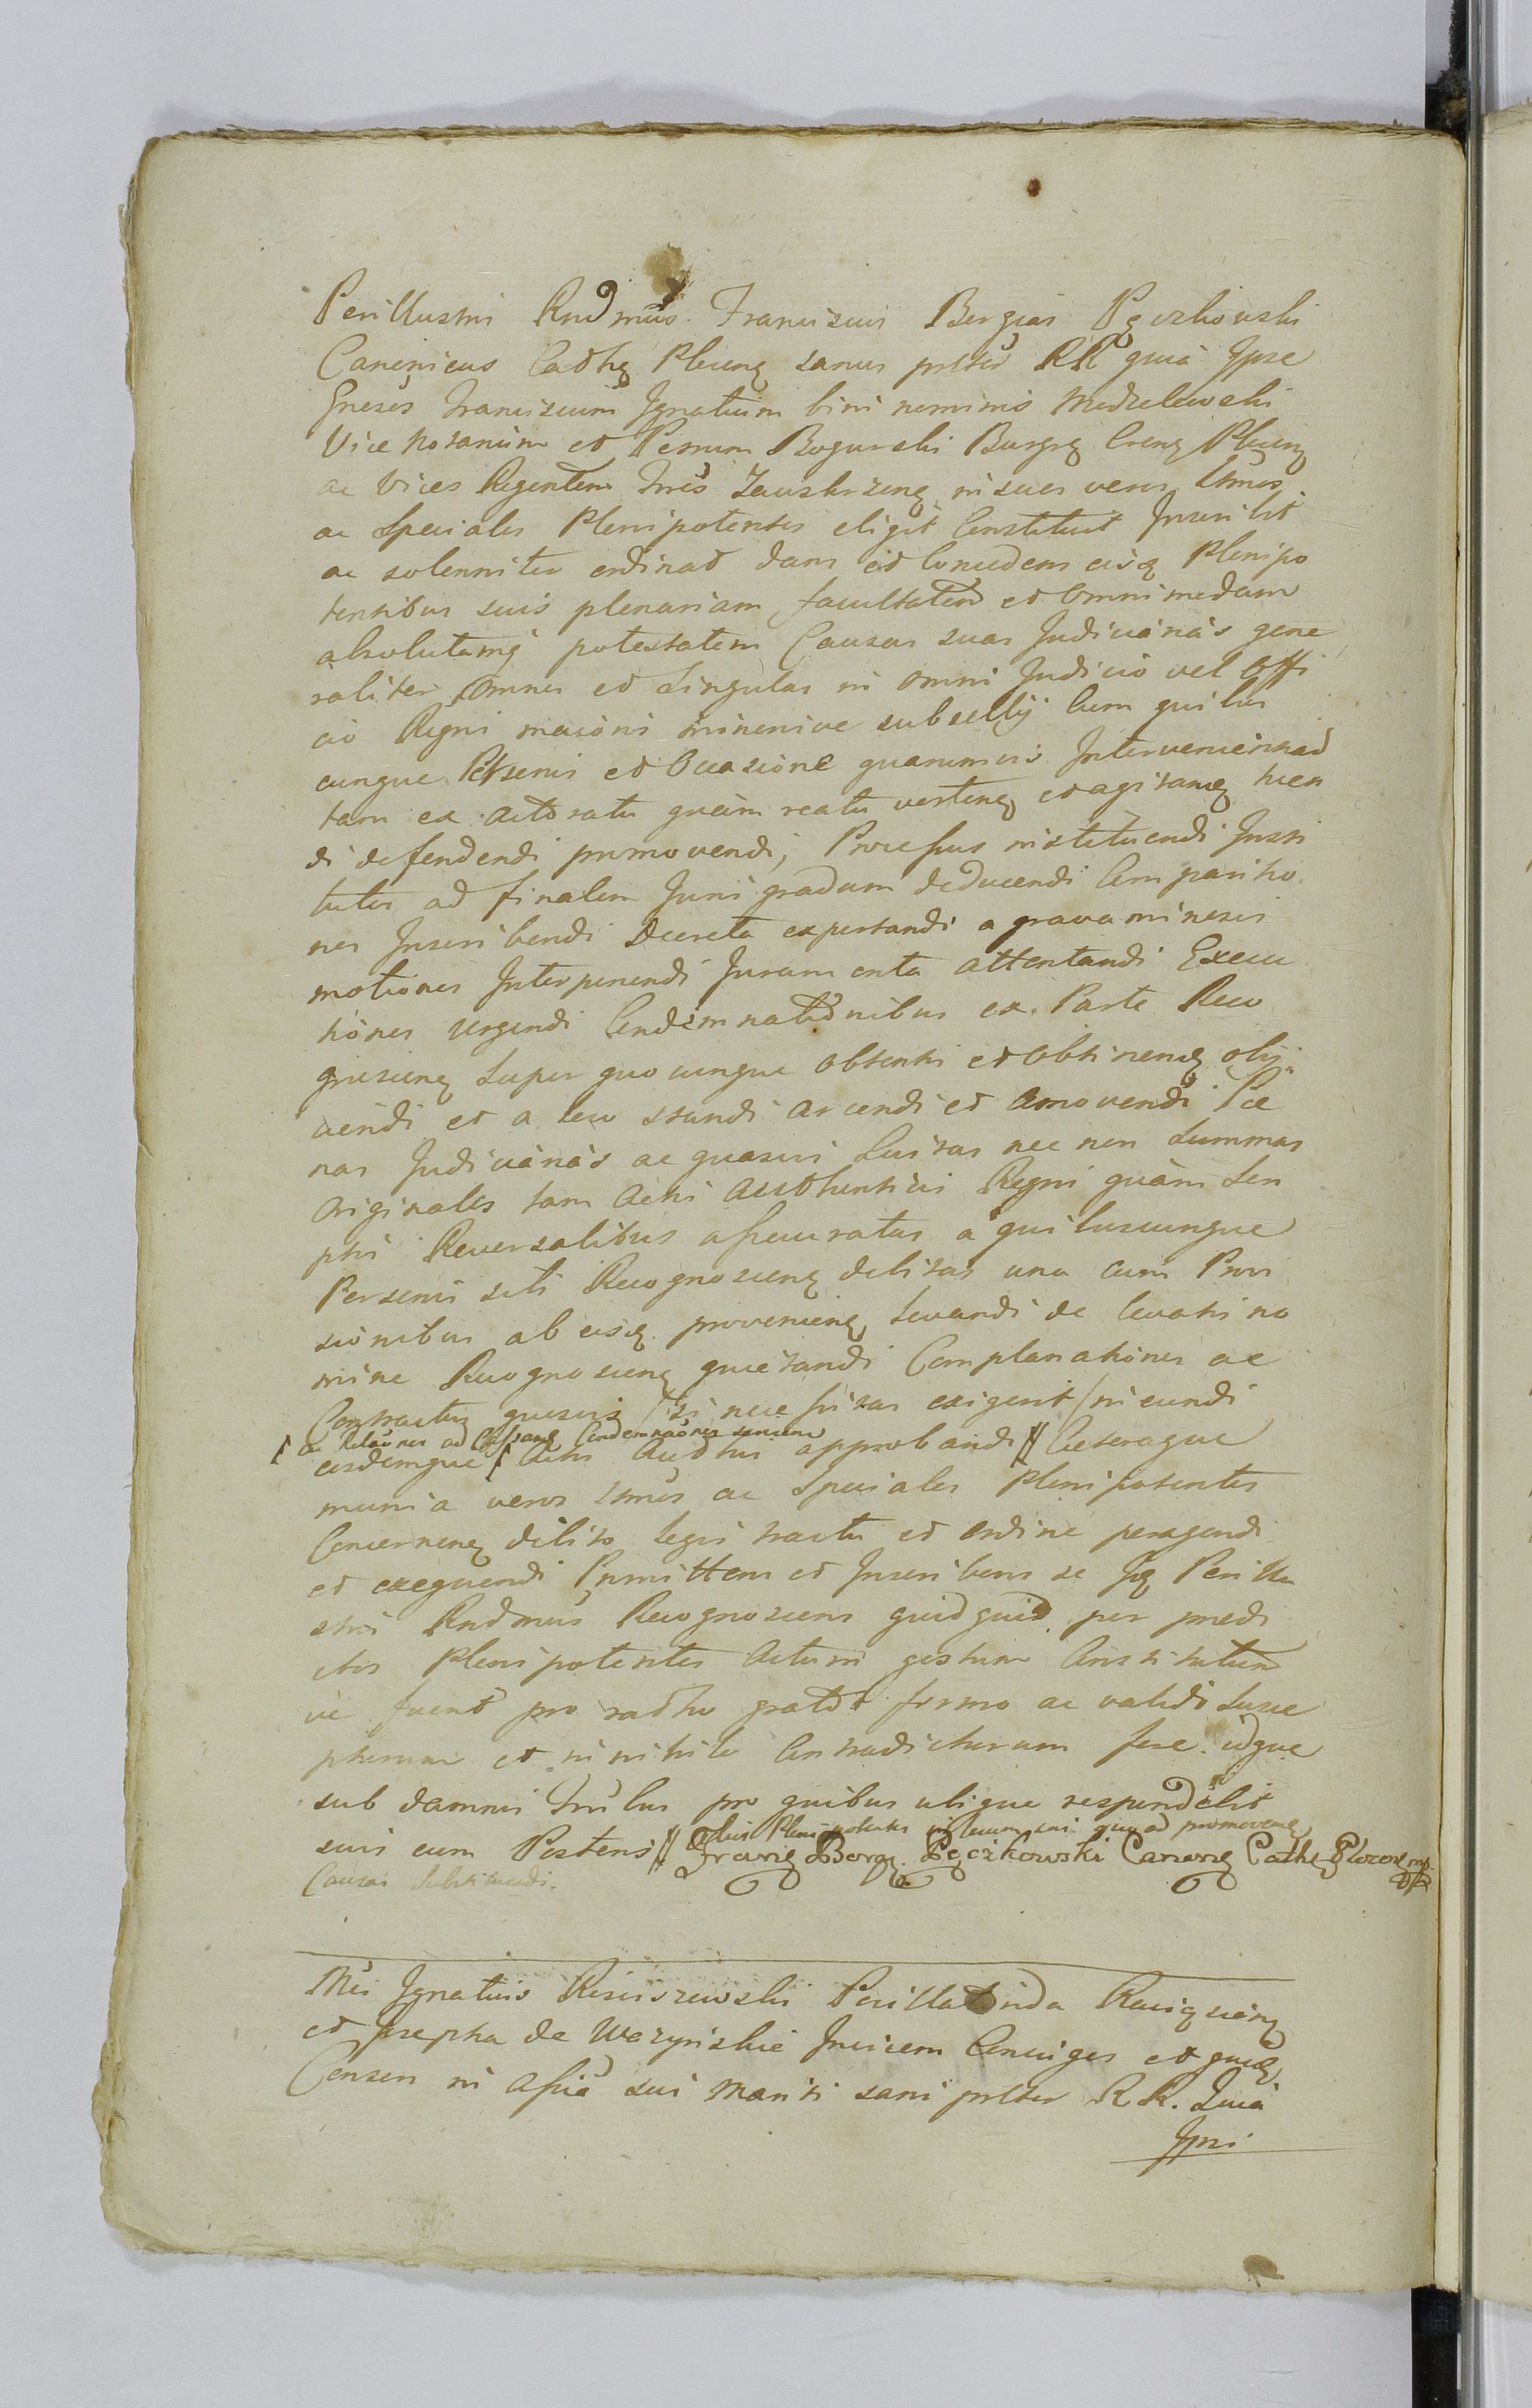 Perillustris Rndmus Franciscus Borgias Pęczkowski
Canonicus Cathę Plocenę sanus prltēr RR quià Ipse
Gnesos Franciscum Ignatium bini nominis Modzelewski
Vice Notarium et Petrum Bogurski Burgrę Crenę Plocenę
ac Vices Regentem Tmēs Zawskrzenę in suos veros Ltmos
ac Speciales Plenipotentes eligit Constituit Inscribit
ac solenniter ordinat dans et Concedens eisdę Plenipo
tentibus suis plenariam facultatem et Omnimodam
absolutamq potestatem Causas suas Judiciarias gene
raliter Omnes et Singulas in omni Judicio vel Offi
cio Regni maioris minorisve subsellij Cum quibus
cunque Personis et Occasione quarumvis
tam ex Actoratu quàm reatu vertenę et agitanę tuen
di defendendi promovendi, Processus instituendi Insti
tutos ad finalem Juris gradum deducendi Comparitio
nes Inscribendi Decreta exportandi a gravaminosis
motiones Interponendi Juramenta attentandi Execu
tiones Urgendi Condemnationibus ex Parte Reco
gnoscenę Super quocunque obtentis et obtinenę obij
ciendi et a loco standi arcendi et amovendi Pœ
nas Judiciarias ac quasvis Luitas nec non Summas
Originales tam Actis Authenticis Regni quàm Scri
ptis Reversalibus assecuratas a quibuscunque
Personis sibi Recognoscenę debitas una cum Provi
sionibus ab eisdę provenienę levandi de levatis no
mine Recognoscenę quietandi Complanationes ac
Contractus quosvis /si necessitas exigerit/ ineundi
ac Relaōnes ad Cassanę Condemnaōnes
eosdemque Actis Authēis approbandi // Cæteraque
munia veros Ltmos ac Speciales Plenipotentes
Concernenę debito legis tractu et ordine peragendi
et exequendi Prmittens et Inscribens se Idę Perillu
stris Rndmus Recognoscens quidquid per prædi
ctos Plenipotentes Actum gestum Constitutum
ve fuerit pro ratho grato firmo ac valido Susce
pturum et in nihilo Contradicturum fore idque
sub damnis Trlbus pro quibus ubique respondebit
suis cum Posteris // Alios Plenipotentes in locum sui quoad promovenę
Franę Borg. Pęczkowski Canonę Cathę Plocenę mp.
Causas Substituendi.
Mci Ignatius Kisieszewski Perilla Recognoscenę
et Josepha de Węzynskie Invicem Coniuges et quidę
Consors in Assiā sui Mariti sani prltēr R R. Quià
Ipsi